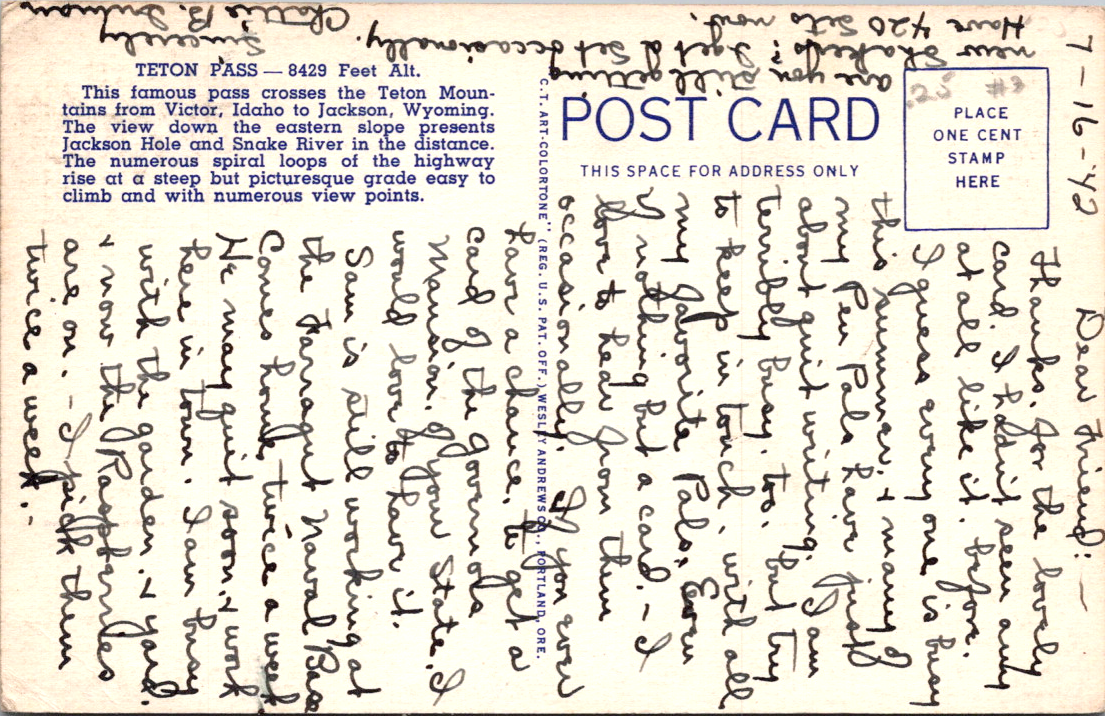 TETON PASS — 8429 Feet Alt.
This famous pass crosses the Teton Moun-
tains from Victor, Idaho to Jackson, Wyoming.
The view down the eastern slope presents
Jackson Hole and Snake River in the distance.
The numerous spiral loops of the highway
rise at a steep but picturesque grade easy to
climb and with numerous view points.
C.T. ART-COLORTONE" (REG. U.S. PAT. OFF.) WESLEY ANDREWS CO., PORTLAND, ORE.
POST CARD
THIS SPACE FOR ADDRESS ONLY
PLACE
ONE CENT
STAMP
HERE
.25 #3
7-16-'42
Dear Friend: —
Thanks for the lovely
card. I hadn't seen any
at all like it. before.
I guess every one is busy
this summer, & many of
my Pen Pals have just
about quit writing. I am
terribly busy, too, but try
to keep in touch, with all
my favorite Pals. Even
if nothing but a card. - I
love to hear from them
occasionally. If you ever
have a chance, to get a
card of the Governor's
Mansion, of your State. I
would love to have it.
Sam is still working at
the Farragut Naval Base
Comes home twice a week.
He may quit soon, & work
here in town. I am busy
with the garden, & yard.
& now the Raspberries
are on. - I pick them
twice a week. -
are you still getting
new Shakers? I get a set occasionally.
Have 420 sets now.
Sincerely